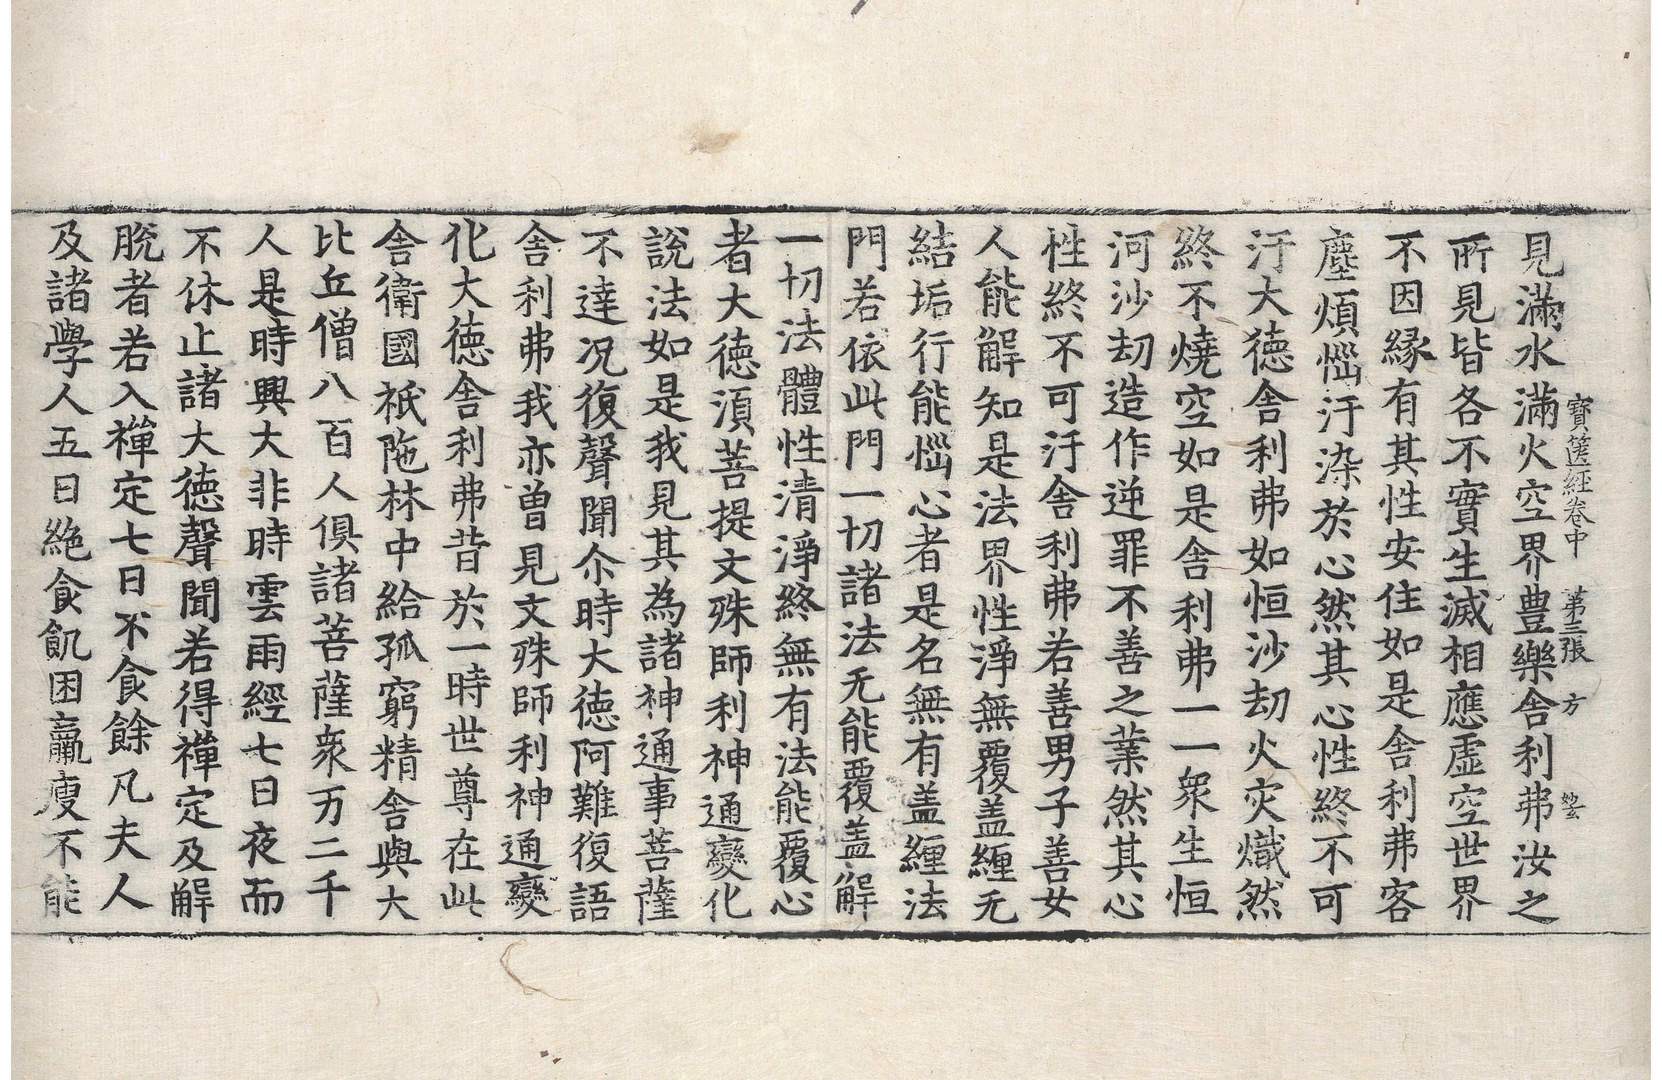 寶篋經卷中 第三張 方
見滿水滿火空界豊樂舍利弗汝之
所見皆各不實生滅相應虛空世界
不因緣有其性安住如是舍利弗客
塵煩惱汙染於心然其心性終不可
汙大德舍利弗如恒沙劫火灾熾然
終不燒空如是舍利弗一一衆生恒
河沙劫造作逆罪不善之業然其心
性終不可汙舍利弗若善男子善女
人能解知是法界性淨無覆盖纏无
結垢行能惱心者是名無有盖纏法
門若依此門一切諸法无能覆盖解
一切法體性清淨終無有法能覆心
者大德湏菩提文殊師利神通變化
說法如是我見其為諸神通事菩薩
不達况復聲聞尒時大德阿難復語
舍利弗我亦曽見文殊師利神通變
化大德舍利弗昔於一時世尊在此
舍衛國祇陁林中給孤窮精舍與大
比丘僧八百人俱諸菩薩衆万二千
人是時興大非時雲雨經七日夜而
不休止諸大德聲聞若得禪定及解
脫者若入禪定七日不食餘凡夫人
及諸學人五日絶食飢困羸瘦不能